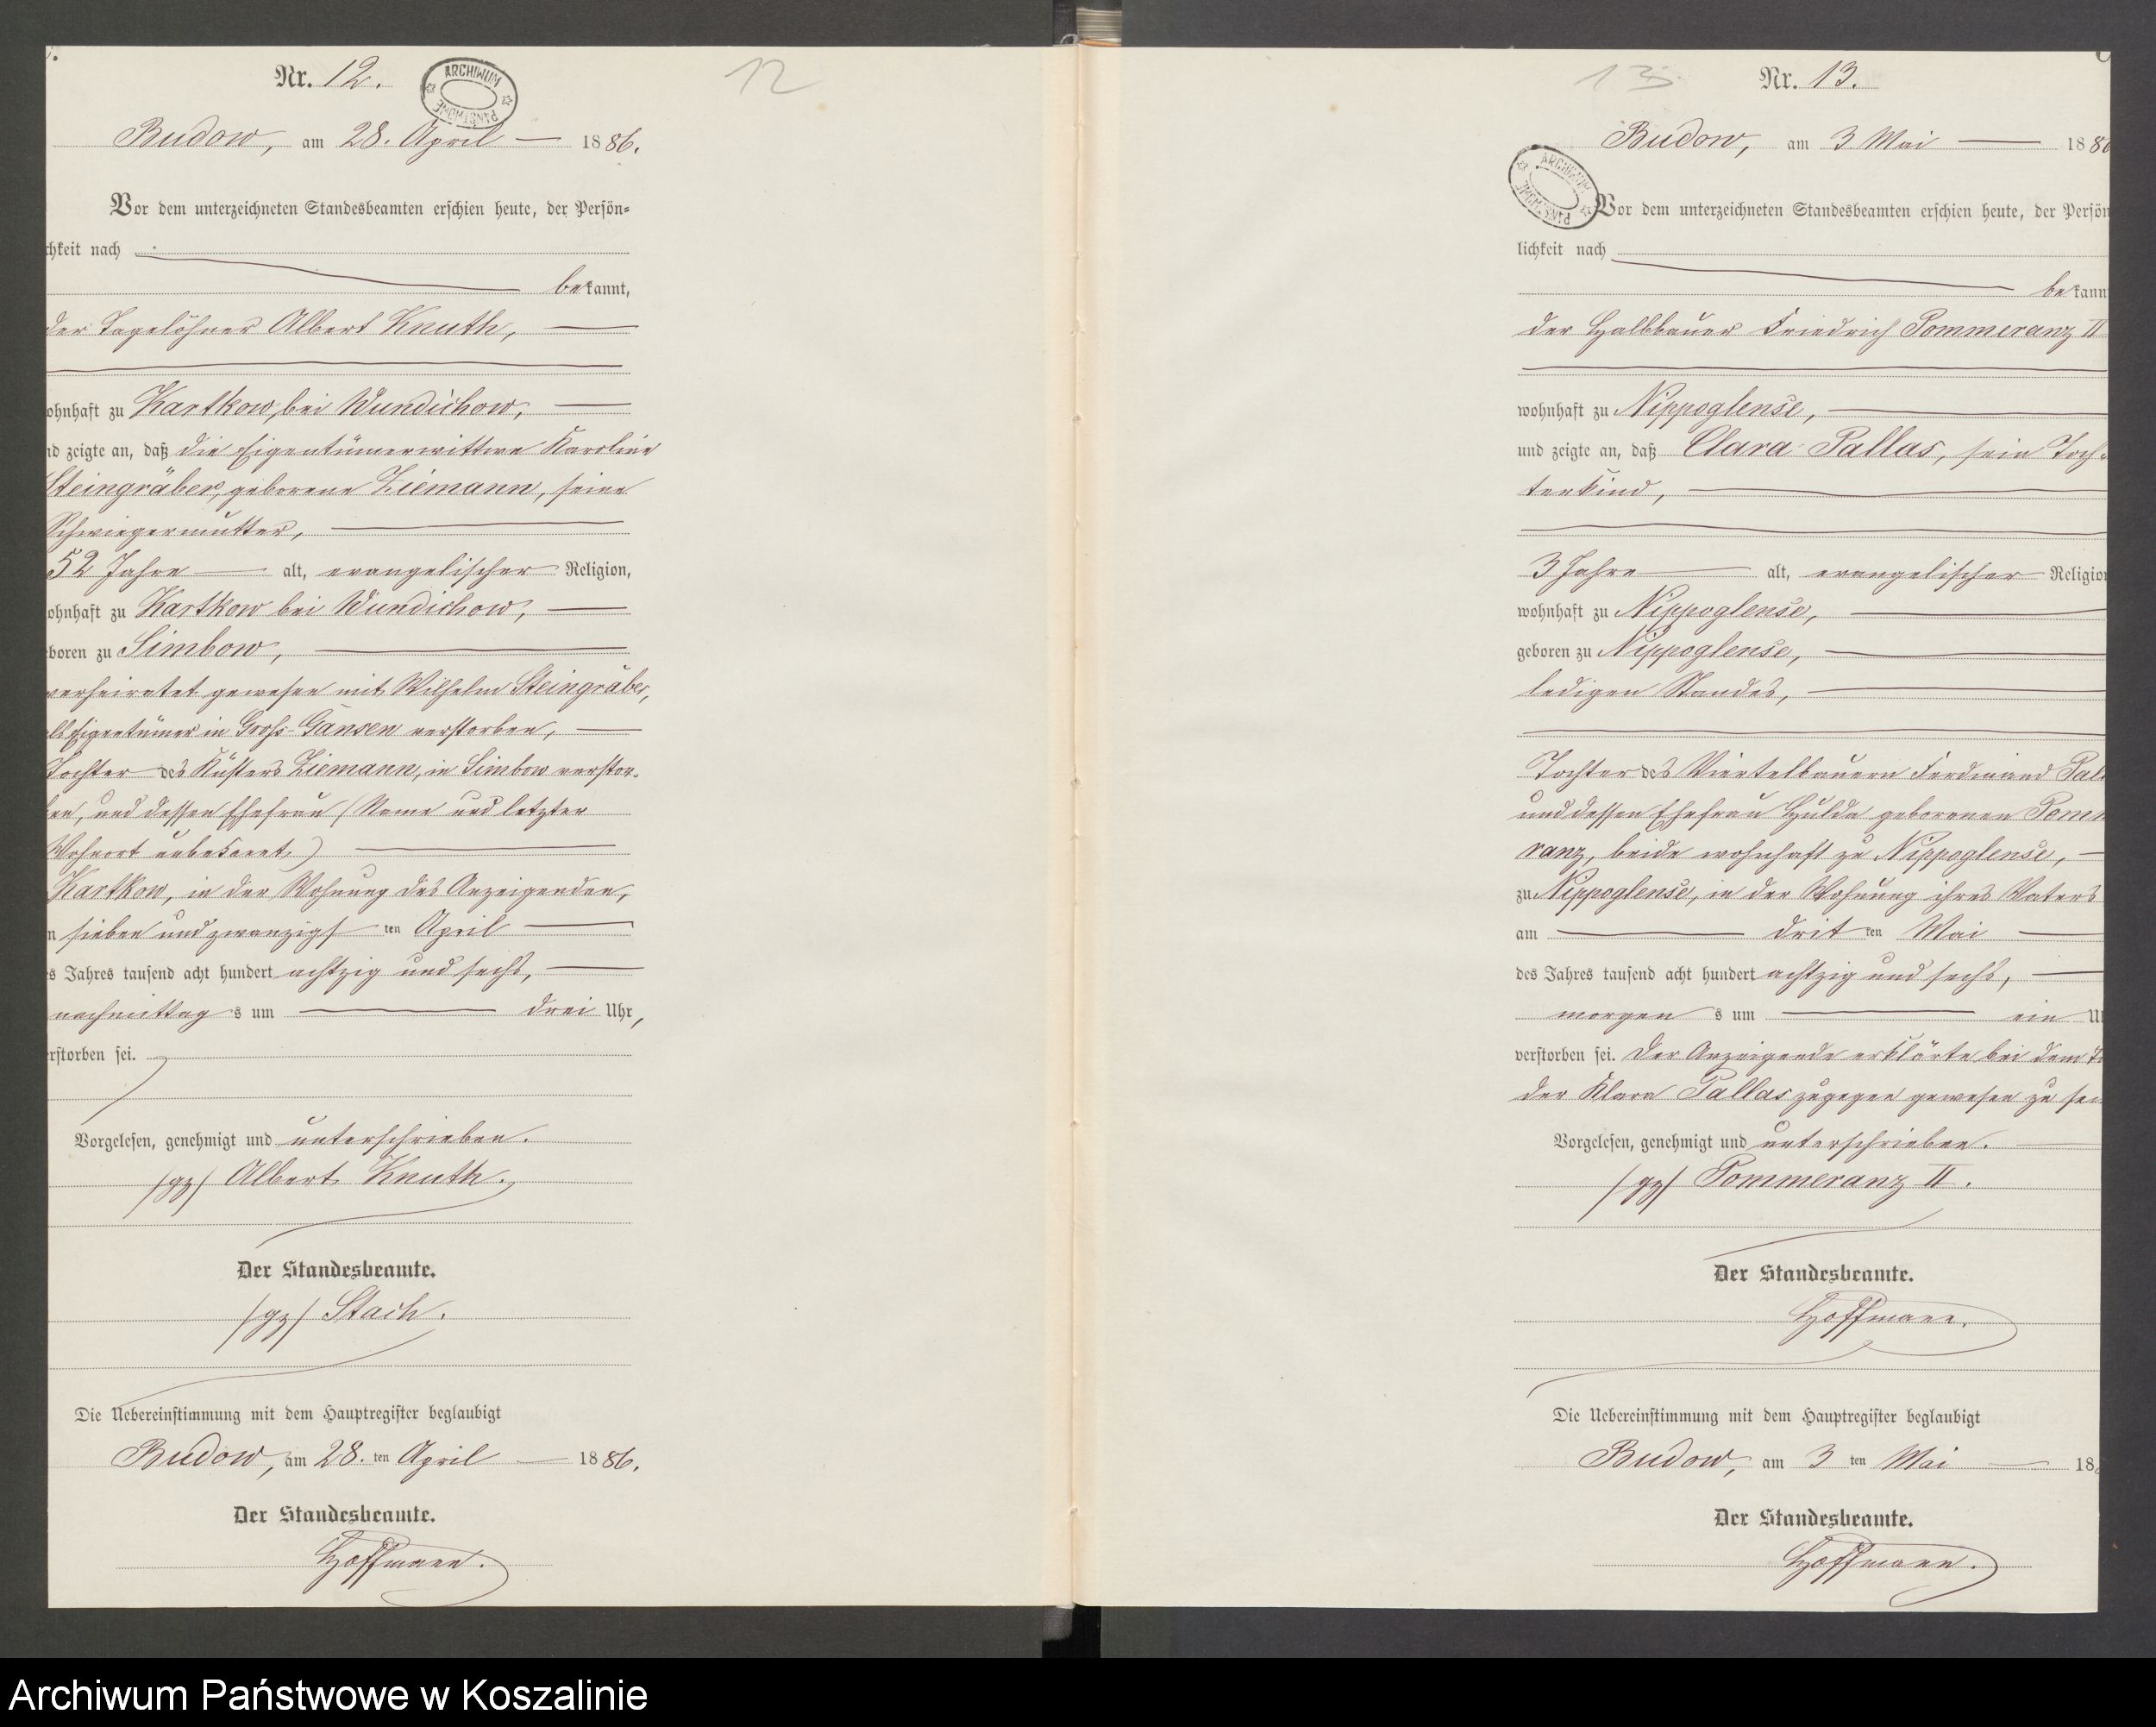 Nr. 12.
ARCHIWUM
PAŃSTWOWE
12
Budow, am 28. April 1886.
Vor dem unterzeichneten Standesbeamten erschien heute, der Persön-
chkeit nach
bekannt,
der Tagelöhner Albert Knuth,
ohnhaft zu Kartkow, bei Wundichow,
nd zeigte an, daß die Eigentümerwittwe Karoline
Steingräber, geborene Ziemann, seine
Schwiegermutter,
52 Jahre alt, evangelischer Religion,
ohnhaft zu Kartkow bei Wundichow,
boren zu Simbow,
verheiratet gewesen mit Wilhelm Steingräber,
als Eigentümer in Groß-Gansen verstorben,
Tochter des Küsters Ziemann, in Simbow verstor-
ben, und dessen Ehefrau (Name und letzter
Wohnort unbekannt)
Kartkow, in der Wohnung des Anzeigenden,
n sieben und zwanzigsten April
s Jahres tausend acht hundert achtzig und sechs,
nachmittags um drei Uhr,
erstorben sei.
Vorgelesen, genehmigt und unterschrieben.
/gz/ Albert Knuth.
Der Standesbeamte.
/gz/ Stach.
Die Uebereinstimmung mit dem Hauptregister beglaubigt
Budow, am 28. ten April 1886.
Der Standesbeamte.
Hoffmann.
13.
Nr. 13.
Budow, am 3. Mai 188
ARCHIWUM
PAŃSTWOWE
Vor dem unterzeichneten Standesbeamten erschien heute, der Persön
lichkeit nach
bekann
der Halbbauer Friedrich Pommeranz II
wohnhaft zu Nippoglense,
und zeigte an, daß Clara Pallas, sein Toch-
terkind,
3 Jahre alt, evangelischer Religio
wohnhaft zu Nippoglense,
geboren zu Nippoglense,
ledigen Standes,
Tochter des Viertelbauern Ferdinand Pal
und dessen Ehefrau Hulda geborenen Pomm
ranz, beide wohnhaft zu Nippoglense,
zu Nippoglense, in der Wohnung ihres Vaters
am dritten Mai
des Jahres tausend acht hundert achtzig und sechs,
morgens um ein U
verstorben sei. Der Anzeigende erklärte bei dem To
der Klara Pallas zugegen gewesen zu sei
Vorgelesen, genehmigt und unterschrieben.
/gz/ Pommeranz II.
Der Standesbeamte.
Hoffmann.
Die Uebereinstimmung mit dem Hauptregister beglaubigt
Budow, am 3 ten Mai 18
Der Standesbeamte.
Hoffmann.
Archiwum Państwowe w Koszalinie